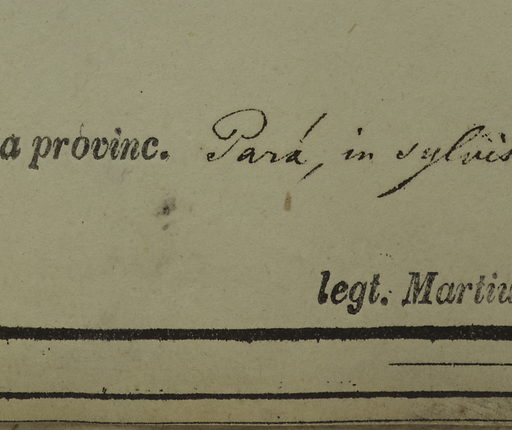 a provinc. Pará, in sylvis
legt. Martiu